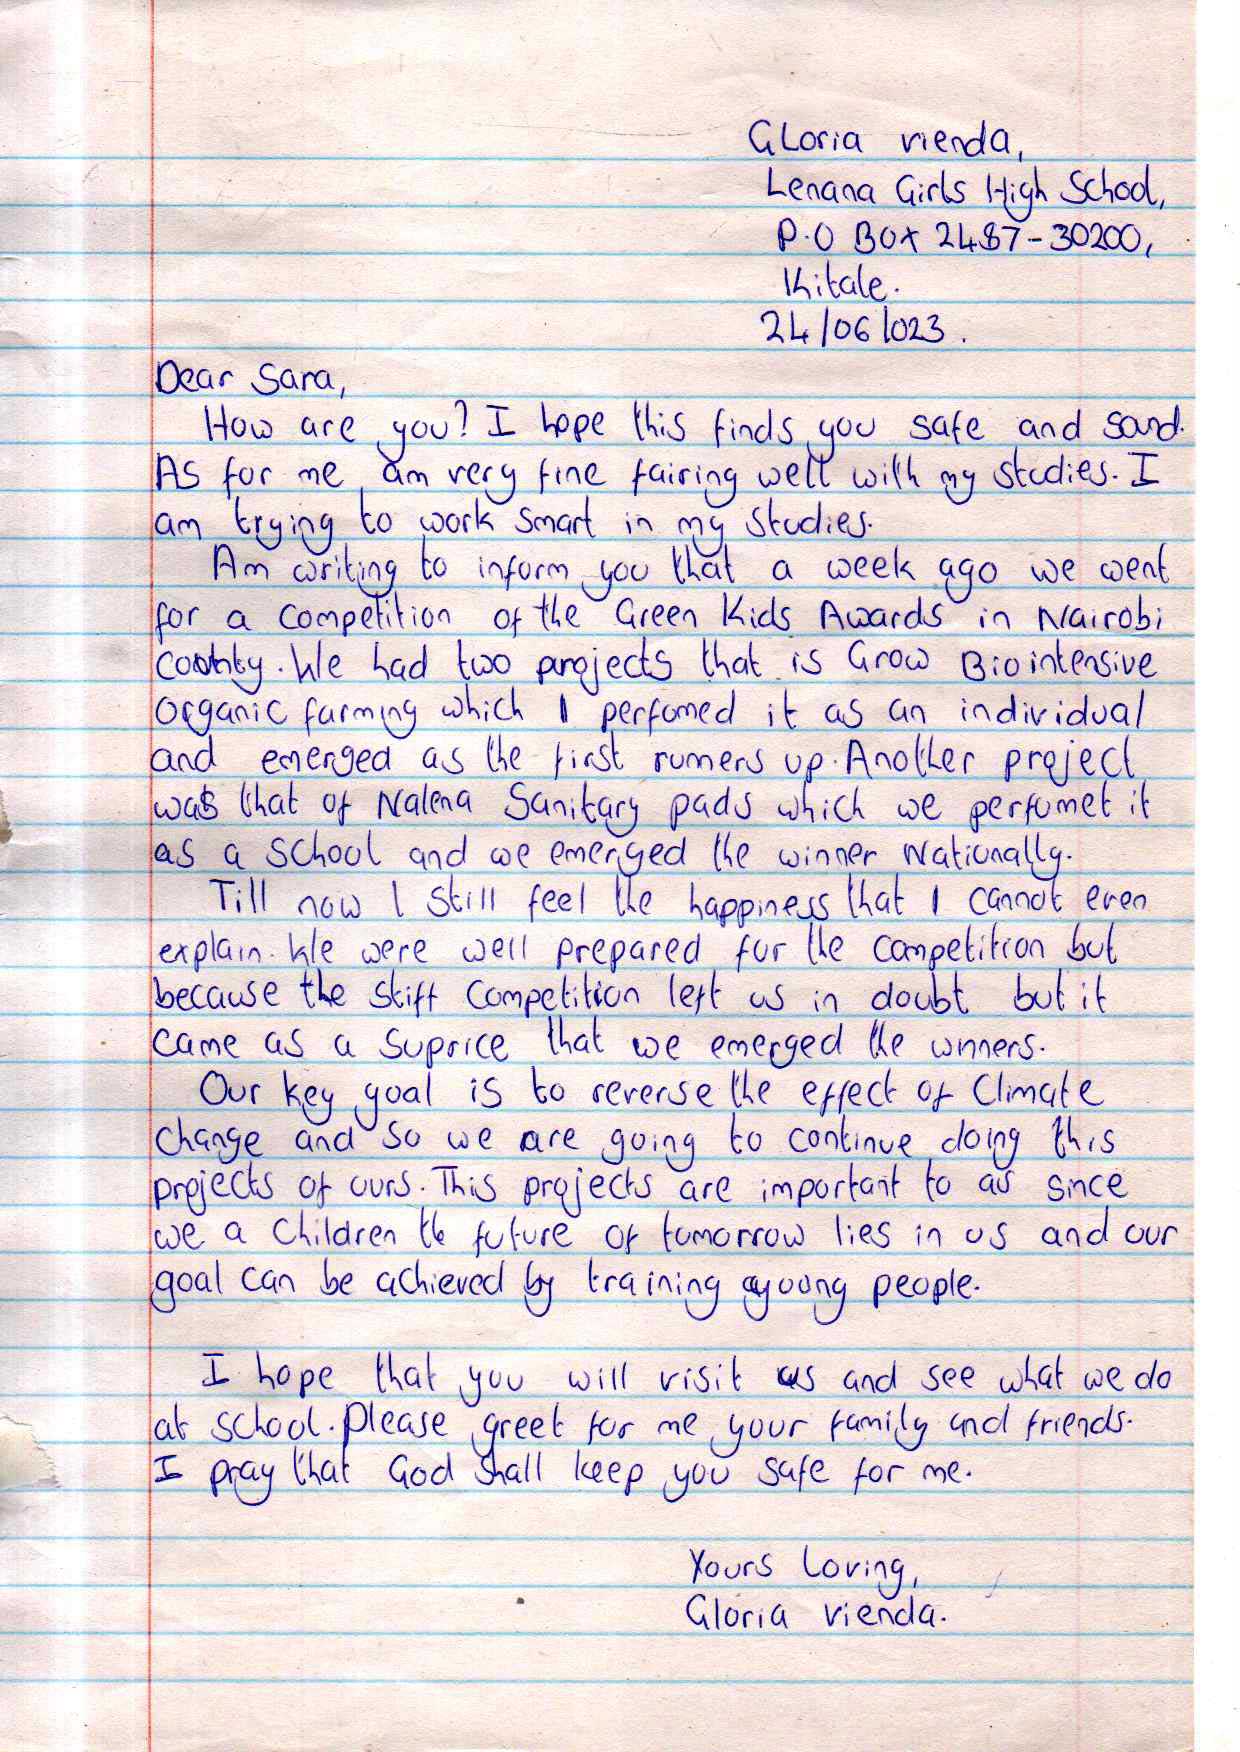 Gloria vienda,
Lenana Girls High School,
P.O Box 2487-30200,
Kitale.
24/06/023.
Dear Sara,
How are you? I hope this finds you safe and sound.
As for me, am very fine fairing well with my studies. I
am trying to work smart in my studies.
Am writing to inform you that a week ago we went
for a competition of the Green Kids Awards in Nairobi
County. We had two projects that is Grow Biointensive
Organic farming which I perfomed it as an individual
and emerged as the first runners up. Another project
was that of Nalena Sanitary pads which we perfumet it
as a school and we emerged the winner Nationally.
Till now I still feel the happiness that I cannot even
explain. We were well prepared for the competition but
because the stiff competition left us in doubt but it
came as a suprice that we emerged the winners.
Our key goal is to reverse the effect of Climate
change and so we are going to continue doing this
projects of ours. This projects are important to as since
we a children the future of tomorrow lies in us and our
goal can be achieved by training young people.
I hope that you will visit us and see what we do
at school. Please greet for me your family and friends.
I pray that God shall keep you safe for me.
Yours Loving,
Gloria vienda.